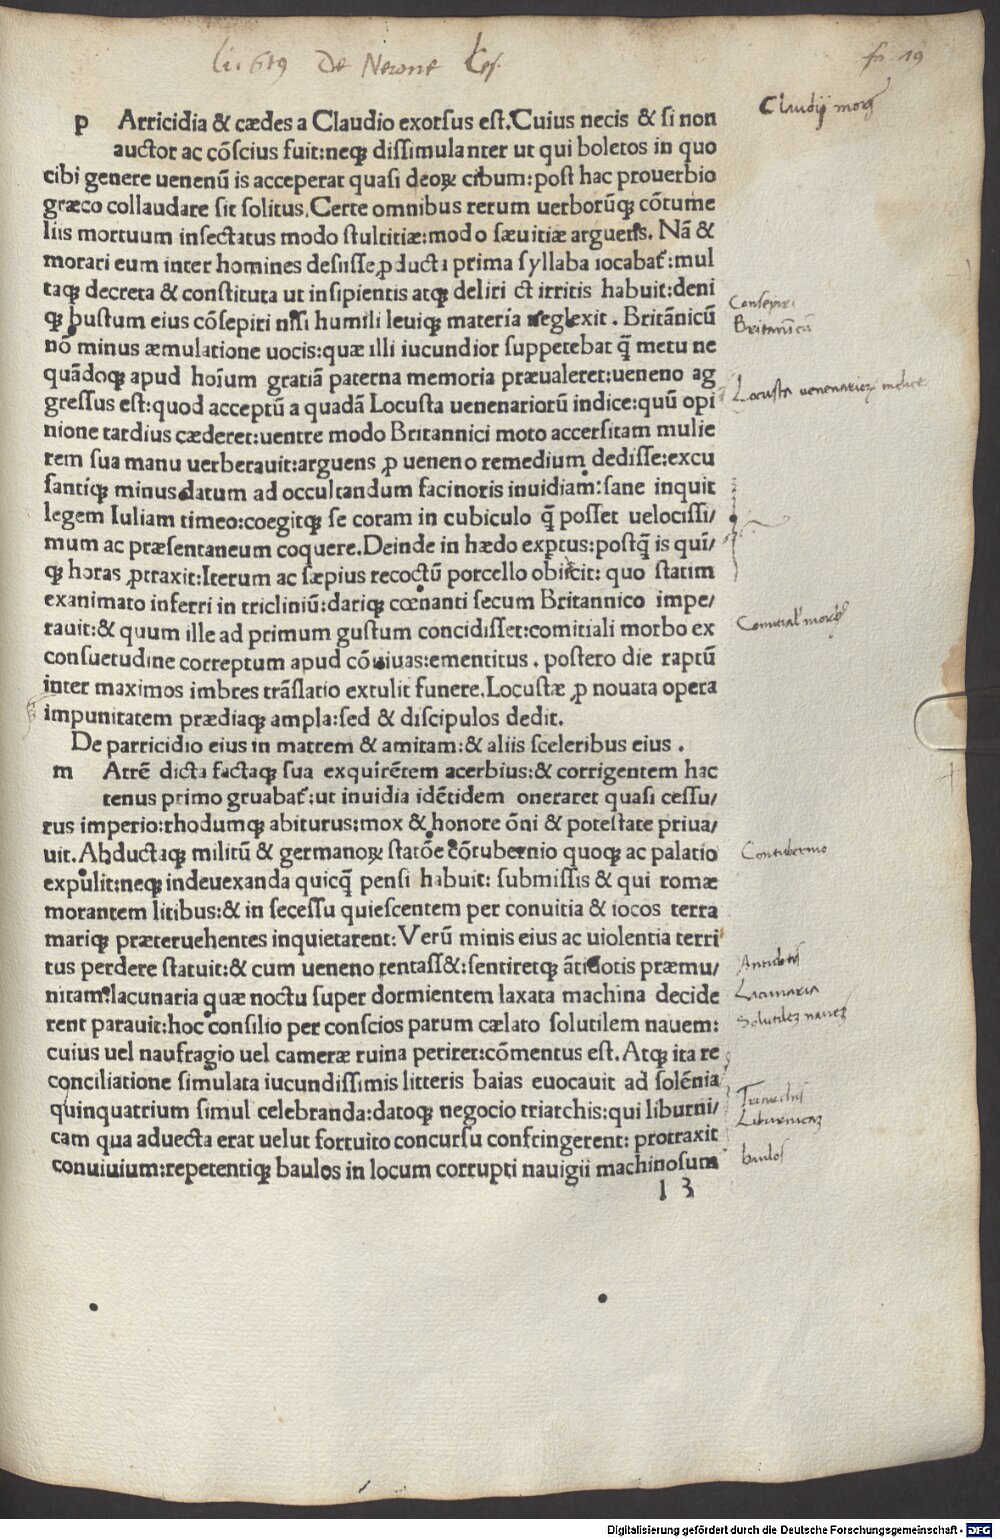 De Nerone Ces.
fo. 19
Claudij mors
p Arricidia & cædes a Claudio exorsus est. Cuius necis & si non
auctor ac cõscius fuit: neqꝫ dissimulanter ut qui boletos in quo
cibi genere uenenũ is acceperat quasi deoꝝ cibum: post hac prouerbio
græco collaudare sit solitus. Certe omnibus rerum uerborũqꝫ cõtume
liis mortuum insectatus modo stultitiæ: modo sæuitiæ arguens. Nã &
morari eum inter homines desiisse ꝓducta prima syllaba iocabat᷑: mul
taqꝫ decreta & constituta ut insipientis atqꝫ deliri ct irritis habuit: deni
qꝫ bustum eius cõsepiri nisi humili leuiqꝫ materia neglexit. Britãnicũ
nõ minus æmulatione uocis: quæ illi iucundior suppetebat q̃ metu ne
quãdoqꝫ apud hoĩum gratiã paterna memoria præualeret: ueneno ag
gressus est: quod acceptũ a quadã Locusta uenenariorũ indice: quũ opi
nione tardius cæderet: uentre modo Britannici moto accersitam mulie
rem sua manu uerberauit: arguens ꝓ ueneno remedium dedisse: excu
santiqꝫ minus datum ad occultandum facinoris inuidiam: sane inquit
legem Iuliam timeo: coegitqꝫ se coram in cubiculo q̃ posset uelocissi/
mum ac præsentaneum coquere. Deinde in hædo exꝑtus: postq̃ is quĩ/
qꝫ horas ꝓtraxit: Iterum ac sæpius recoctũ porcello obiecit: quo statim
exanimato inferri in tricliniũ: dariqꝫ cœnanti secum Britannico impe/
rauit: & quum ille ad primum gustum concidisset: comitiali morbo ex
consuetudine correptum apud cõuiuas: ementitus. postero die raptũ
inter maximos imbres trãslatio extulit funere. Locustæ ꝓ nouata opera
impunitatem prædiaqꝫ ampla: sed & discipulos dedit.
De parricidio eius in matrem & amitam: & aliis sceleribus eius.
m Atrẽ dicta factaqꝫ sua exquirẽtem acerbius: & corrigentem hac
tenus primo gruabat᷑: ut inuidia idẽtidem oneraret quasi cessu/
rus imperio: rhodumqꝫ abiturus: mox & honore õni & potestate priua/
uit. Abductaqꝫ militũ & germanoꝝ statõe cõtubernio quoqꝫ ac palatio
expulit: neqꝫ indeuexanda quicq̃ pensi habuit: submissis & qui romæ
morantem litibus: & in secessu quiescentem per conuitia & iocos terra
mariqꝫ præteruehentes inquietarent: Verũ minis eius ac uiolentia terri
tus perdere statuit: & cum ueneno tentass&: sentiretqꝫ ãtidotis præmu/
nitam: lacunaria quæ noctu super dormientem laxata machina decide
rent parauit: hoc consilio per conscios parum cælato solutilem nauem:
cuius uel naufragio uel cameræ ruina periret: cõmentus est. Atqꝫ ita re
conciliatione simulata iucundissimis litteris baias euocauit ad solẽnia
quinquatrium simul celebranda: datoqꝫ negocio triarchis: qui liburni/
cam qua aduecta erat uelut fortuito concursu confringerent: protraxit
conuiuium: repetentiqꝫ baulos in locum corrupti nauigii machinosum
l 3
Consepiri
Britannicũ
Locusta uenenarioꝝ indice
Comitial' morb9
Contubernio
Antidotis
Lacunaria
Solutiles naues
Triarchis
Liburnicas
baulos
Digitalisierung gefördert durch die Deutsche Forschungsgemeinschaft - DFG